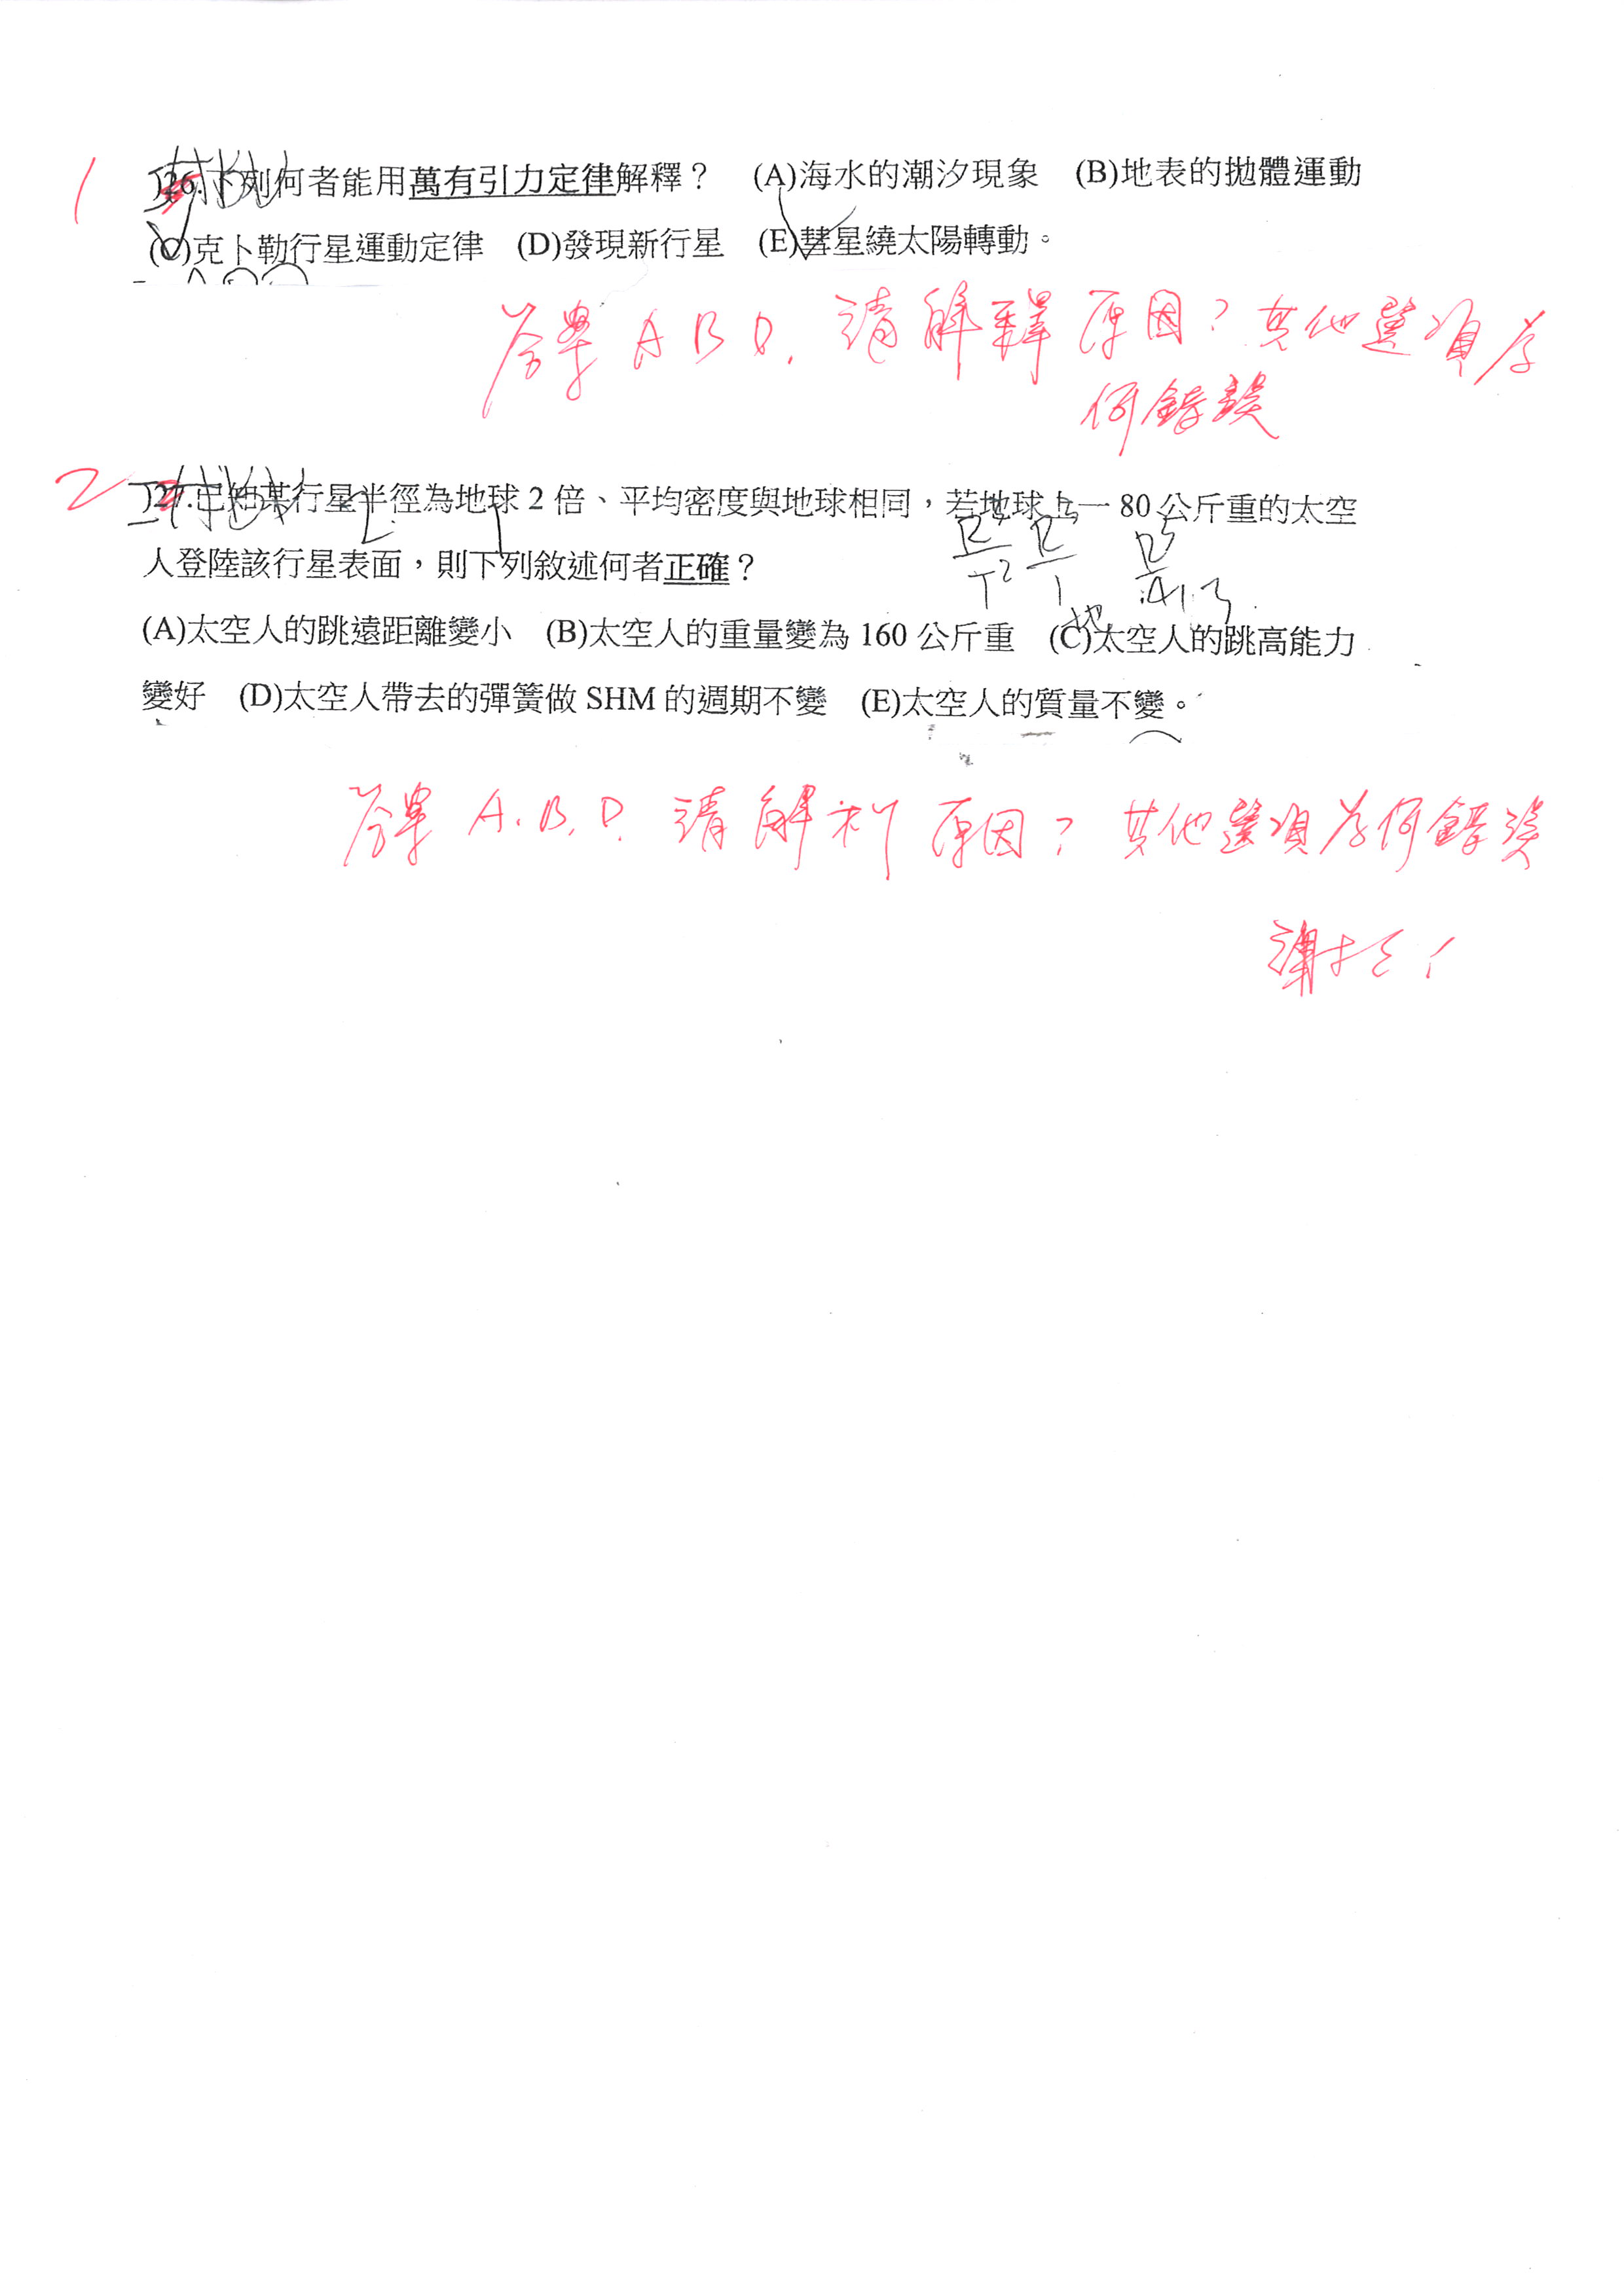 1
)26.下列何者能用萬有引力定律解釋? (A)海水的潮汐現象 (B)地表的拋體運動
(C)克卜勒行星運動定律 (D)發現新行星 (E)彗星繞太陽轉動。
答案 A B D. 請解釋原因? 其他選項為
何錯誤
2
)27.已知某行星半徑為地球 2 倍、平均密度與地球相同,若地球上一 80 公斤重的太空
人登陸該行星表面,則下列敘述何者正確?
(A)太空人的跳遠距離變小 (B)太空人的重量變為 160 公斤重 (C)太空人的跳高能力
變好 (D)太空人帶去的彈簧做 SHM 的週期不變 (E)太空人的質量不變。
答案 A.B.D. 請解析原因? 其他選項為何錯誤
謝